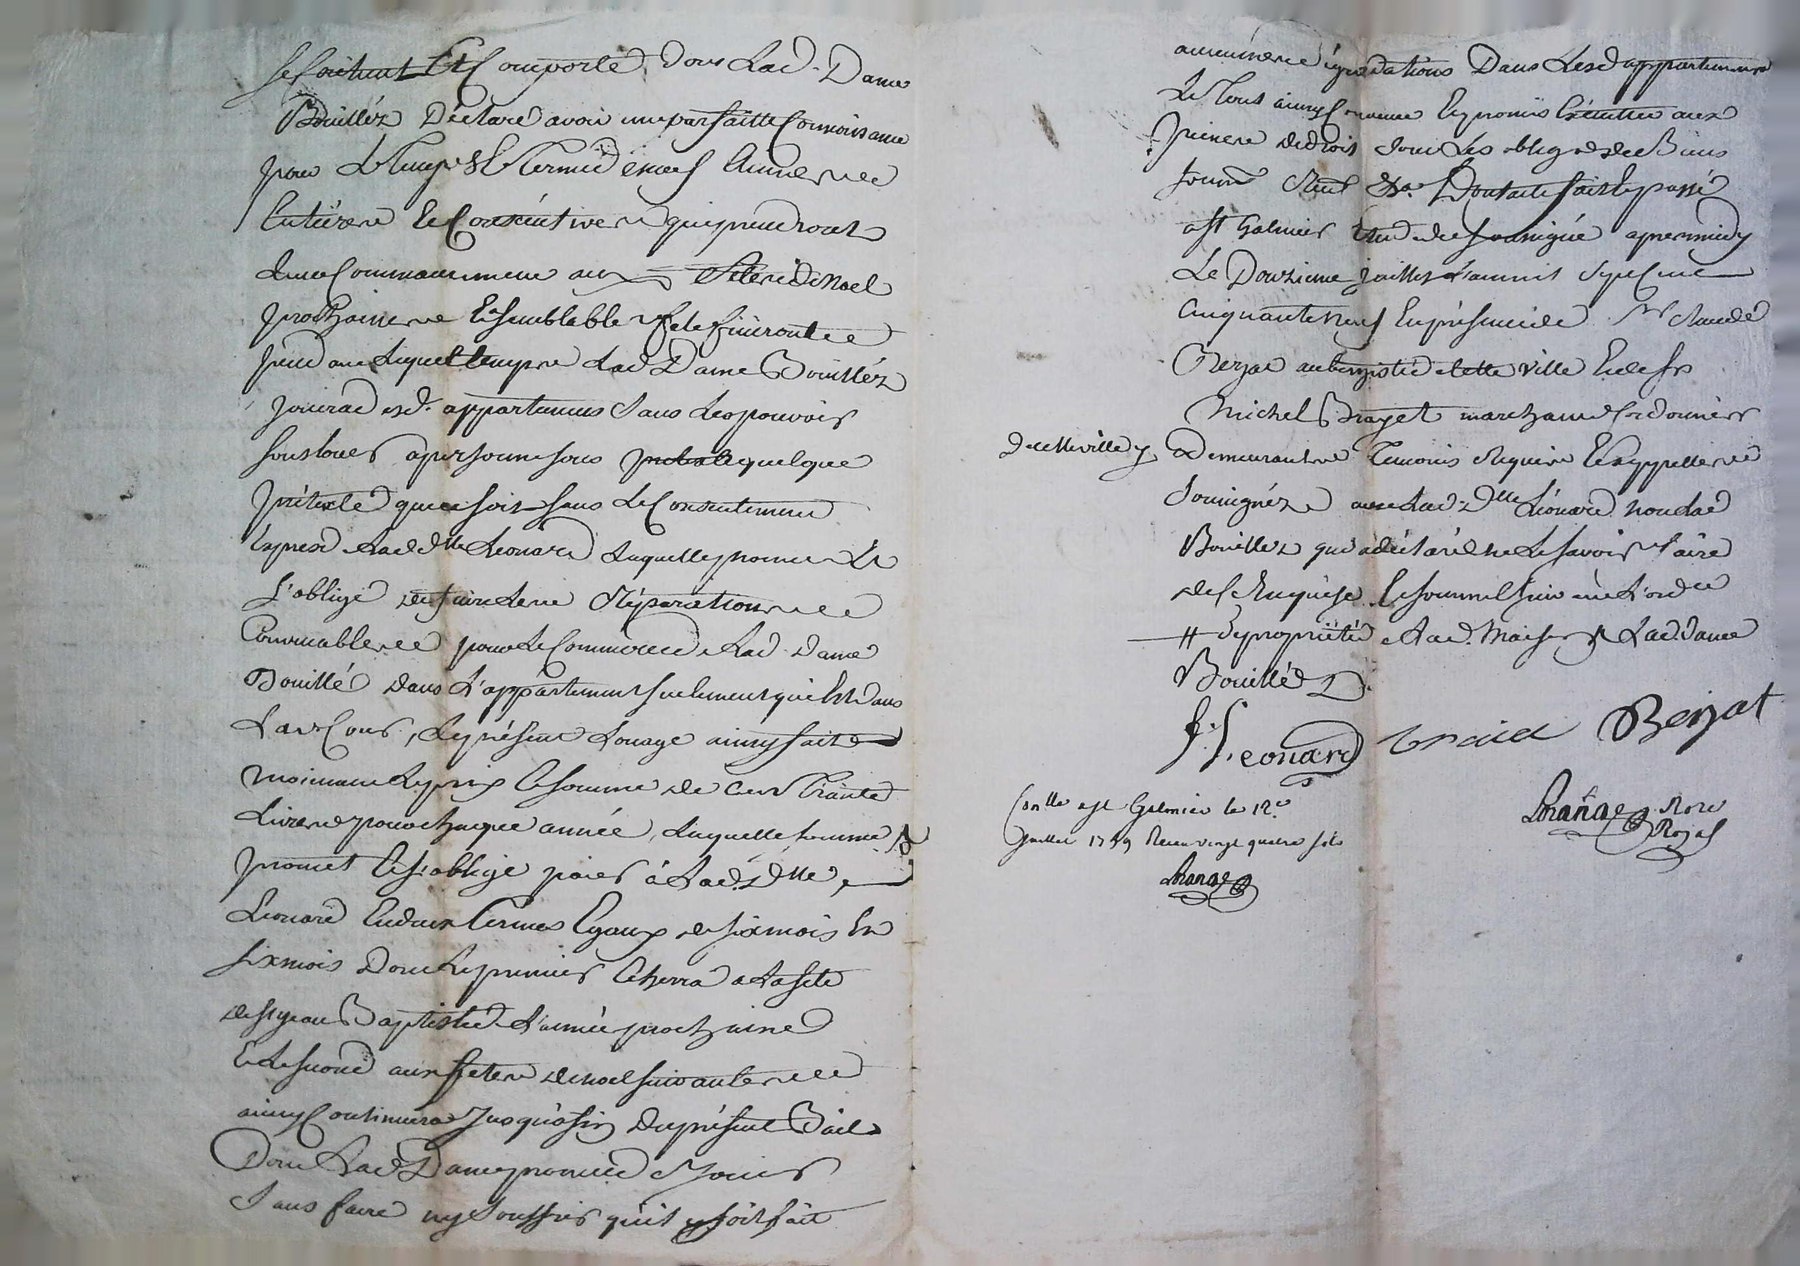 se Contient Et Comporte, dont Lad. Dame
Bouilléz Déclare avoir une parfaitte Connoissance
pour Le temps & Terme de neuf Années
Entiéres Et Consécutives qui prendront
Leur Commancement aux fetes de Noel
prochaines Et Semblable fete finiront
pendant Lequel temps Lad Dame Bouilléz
jouira desd. appartemens Sans Les pouvoir
Souslouer a personne sous quelque
prétexte que ce soit sans Le Consentement
Exprest de Lad dlle Léonard Laquelle promet Et
s'oblige de faire Les Réparations
Convenables pour Le Commerce de Lad. Dame
Bouillé dans L'appartement seulement qui Est dans
La Cour, Le présent Louage ainsy fait
moienant Le prix Et somme de Cent Trante
Livres pour chaque année, Laquelle somme
promet Et s'oblige paier à Lad. Dlle
Léonard En deux Termes Egaux de six mois En
six mois Dont Le premier Echerra a La fete
de St jean Baptiste de L'année prochaine
Et Le second aux fetes de noel suivantes
ainsy Continuera Jusqu'a fin du présent Bail
Dont Lad Dame promet Jouir
Sans faire ny souffrir qu'il y soit fait
aucunes dégradations Dans Lesd appartemens
Le Tout ainsy Convenu Et promis Exécutter aux
peines de droit sous Les oblig. de Biens
soum. Ren. & Dont acte fait Et passé
a St Galmier Etude de soussigné apres midy
Le Douzieme juillet L'an mil Sept Cent
Cinquante Neuf En présence de Sr Claude
Berjat aubergiste de cette ville Et de Sr
Michel Brayet marchand Cordonnier
de cette ville y Demeurants Temoins Requis Et appellés
Soussignéz avec Lad. Dlle Léonard non Lad
Bouilléz qui a déclaré ne Le savoir faire
de ce Enquise Et sommée suivant L'ordce
# de propriété de Lad. Maison Lad. Dame
Bouillé
f. Leonard Berjat
Conlle a St Galmier le 12e
Juillet 1759 Recu vingt quatre sols
Nore
Royal